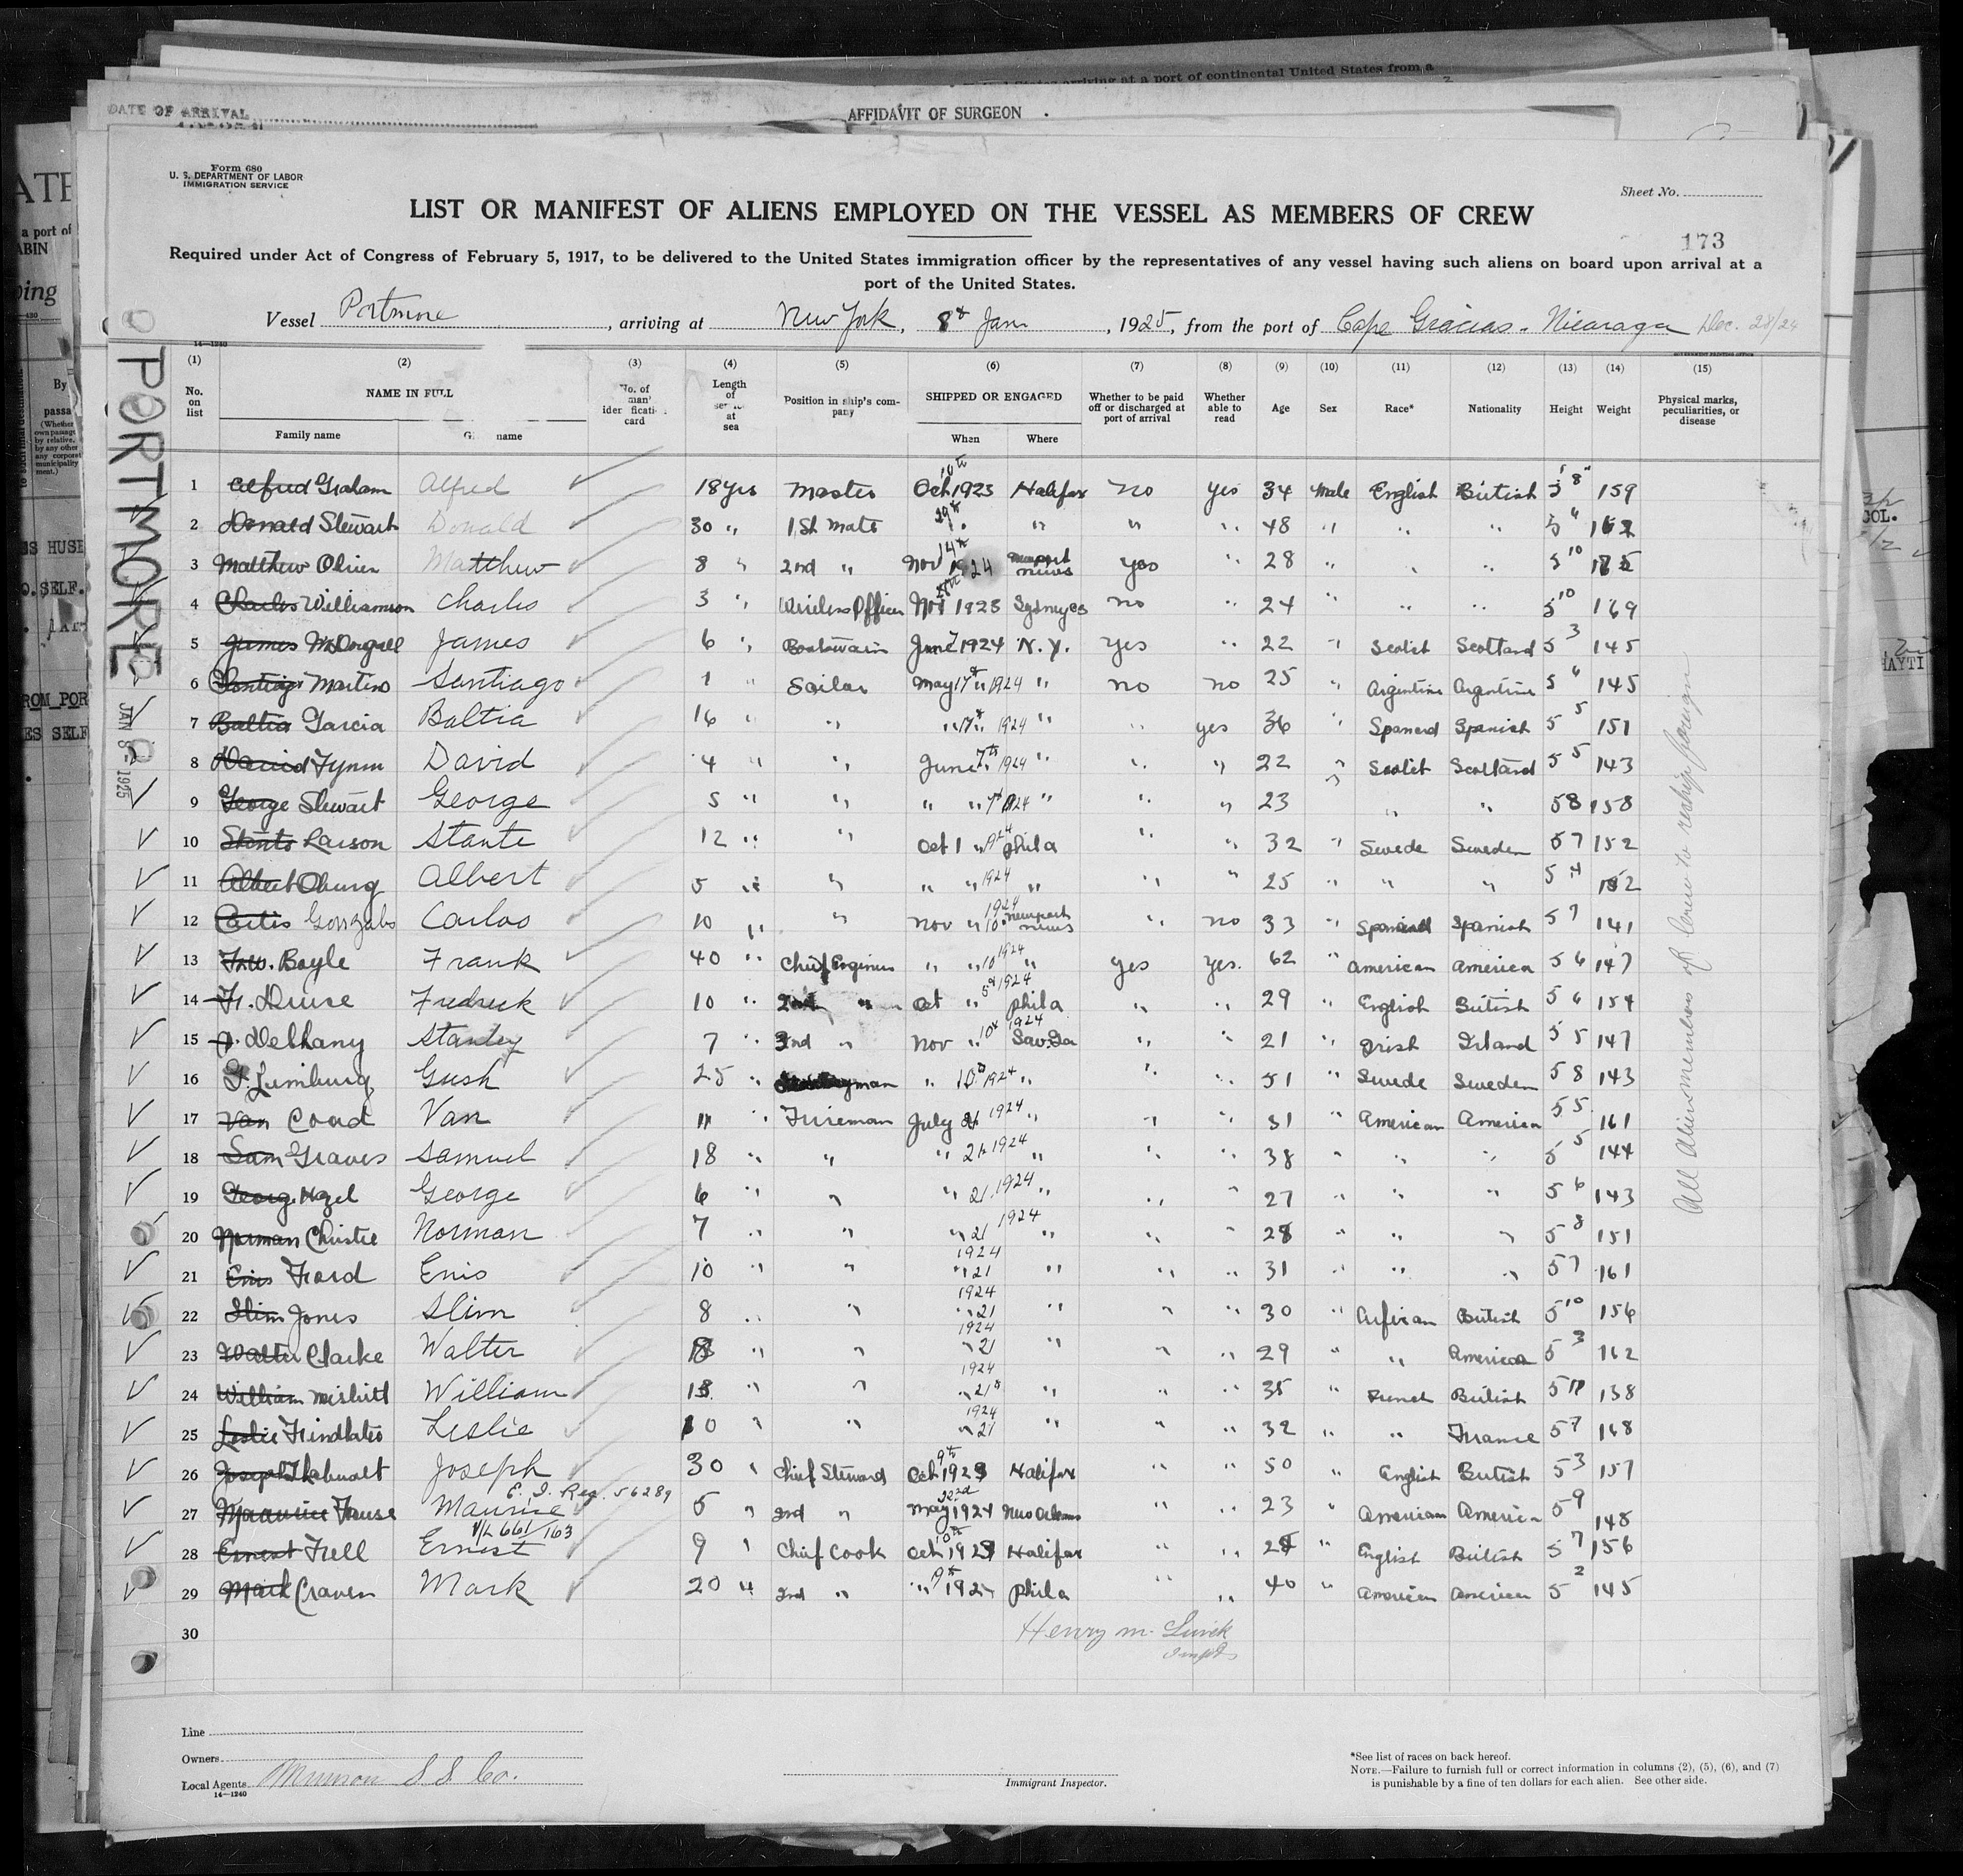 arriving at a port of continental United States from a
DATE OF ARRIVAL
AFFIDAVIT OF SURGEON
Form 680
U. S. DEPARTMENT OF LABOR
IMMIGRATION SERVICE
Sheet No.
LIST OR MANIFEST OF ALIENS EMPLOYED ON THE VESSEL AS MEMBERS OF CREW
173
Required under Act of Congress of February 5, 1917, to be delivered to the United States immigration officer by the representatives of any vessel having such aliens on board upon arrival at a
port of the United States.
Vessel Portmore, arriving at New York, 8th Jan, 1925, from the port of Cape Gracias - Nicaragua Dec. 28/24
14—1240
PORTMORE
JAN 8 - 1925
(1) (2) (3) (4) (5) (6) (7) (8) (9) (10) (11) (12) (13) (14) (15)
No. on list NAME IN FULL Family name Given name No. of card Length of service at sea Position in ship's company SHIPPED OR ENGAGED When Where Whether to be paid off or discharged at port of arrival Whether able to read Age Sex Race* Nationality Height Weight Physical marks, peculiarities, or disease
1 Alfred Graham Alfred 18 yrs Master Oct 10th 1923 Halifax no yes 34 Male English British 5' 8" 159
2 Donald Stewart Donald 30 " 1st Mate 29th " " " " 48 " " " 5 6 162
3 Matthew Obrien Matthew 8 " 2nd " Nov 14th 1924 Newport News Yes " 28 " " " 5 10 175
4 Charles Williamson Charles 3 " Wireless Officer Nov 28th 1923 no " 24 " " " 5 10 169
5 James McDougall James 6 " Boatswain June 7 1924 N.Y. Yes " 22 " Scotch Scotland 5 3 145
6 Santiago Martino Santiago 1 " Sailor May 17th 1924 " no no 25 " Argentine Argentine 5 6 145
7 Baltia Garcia Baltia 16 " " " 17th 1924 " " yes 36 " Spaniard Spanish 5 5 151
8 David Fynn David 4 " " June 7th 1924 " " " 22 " Scotch Scotland 5 5 143
9 George Stewart George 5 " " " " 7th 1924 " " " 23 " " " 5 8 158
10 Stante Larson Stante 12 " " Oct 1 1924 Phila " " 32 " Swede Sweden 5 7 152
11 Albert Oburg Albert 5 " " " " 1924 " " " 25 " " " 5 4 152
12 Carlos Gonzalos Carlos 10 " " Nov 10 1924 Newport News " no 33 " Spaniard Spanish 5 7 141
13 Boyle Frank 40 " Chief Engineer " " 10 1924 " yes yes. 62 " American America 5 6 147
14 Fr. Druse Fredrick 10 " 2nd " Oct 5th 1924 Phila " " 29 " English British 5 6 154
15 Delhany Stanley 7 " 3rd " Nov 10th 1924 Sav. Ga " " 21 " Irish Irland 5 5 147
16 G. Lumburg Gush 25 " " 10th 1924 " " " 51 " Swede Sweden 5 8 143
17 Van Coad Van 11 " Fireman July 21 1924 " " " 31 " American America 5 5 161
18 Sam Graves Samuel 18 " " " 21 1924 " " " 38 " " " 5 5 144
19 George Hazel George 6 " " " 21 1924 " " " 27 " " " 5 6 143
20 Norman Christie Norman 7 " " " 21 1924 " " " 28 " " " 5 8 151
21 Enis Ford Enis 10 " " " 21 1924 " " " 31 " " " 5 7 161
22 Slim Jones Slim 8 " " " 21 1924 " " " 30 " African British 5 10 156
23 Walter Clarke Walter 18 " " " 21 1924 " " " 29 " " American 5 3 162
24 William Misbitt William 18 " " " 21st 1924 " " " 35 " French British 5 11 138
25 Leslie Leslie 10 " " " 21 1924 " " " 32 " " France 5 7 168
26 Joseph Joseph 30 " Chief Steward Oct 9th 1923 Halifax " " 50 " English British 5 3 157
E. I. Reg. 56289
27 Maurice Fruse Maurice 5 " 2nd " May 22nd 1924 New Orleans " " 23 " American America 5 9 148
V/L 661/163
28 Ernest Frell Ernest 9 " Chief Cook Oct 10th 1923 Halifax " " 28 " English British 5 7 156
29 Mark Craven Mark 20 " 2nd " " 9th 1924 Phila " " 40 " American American 5 2 145
30
All Alien members of Crew to reship foreign
Henry M.
Line
Owners
Local Agents Munson S. S. Co.
14—1240
Immigrant Inspector.
*See list of races on back hereof.
NOTE.—Failure to furnish full or correct information in columns (2), (5), (6), and (7)
is punishable by a fine of ten dollars for each alien. See other side.